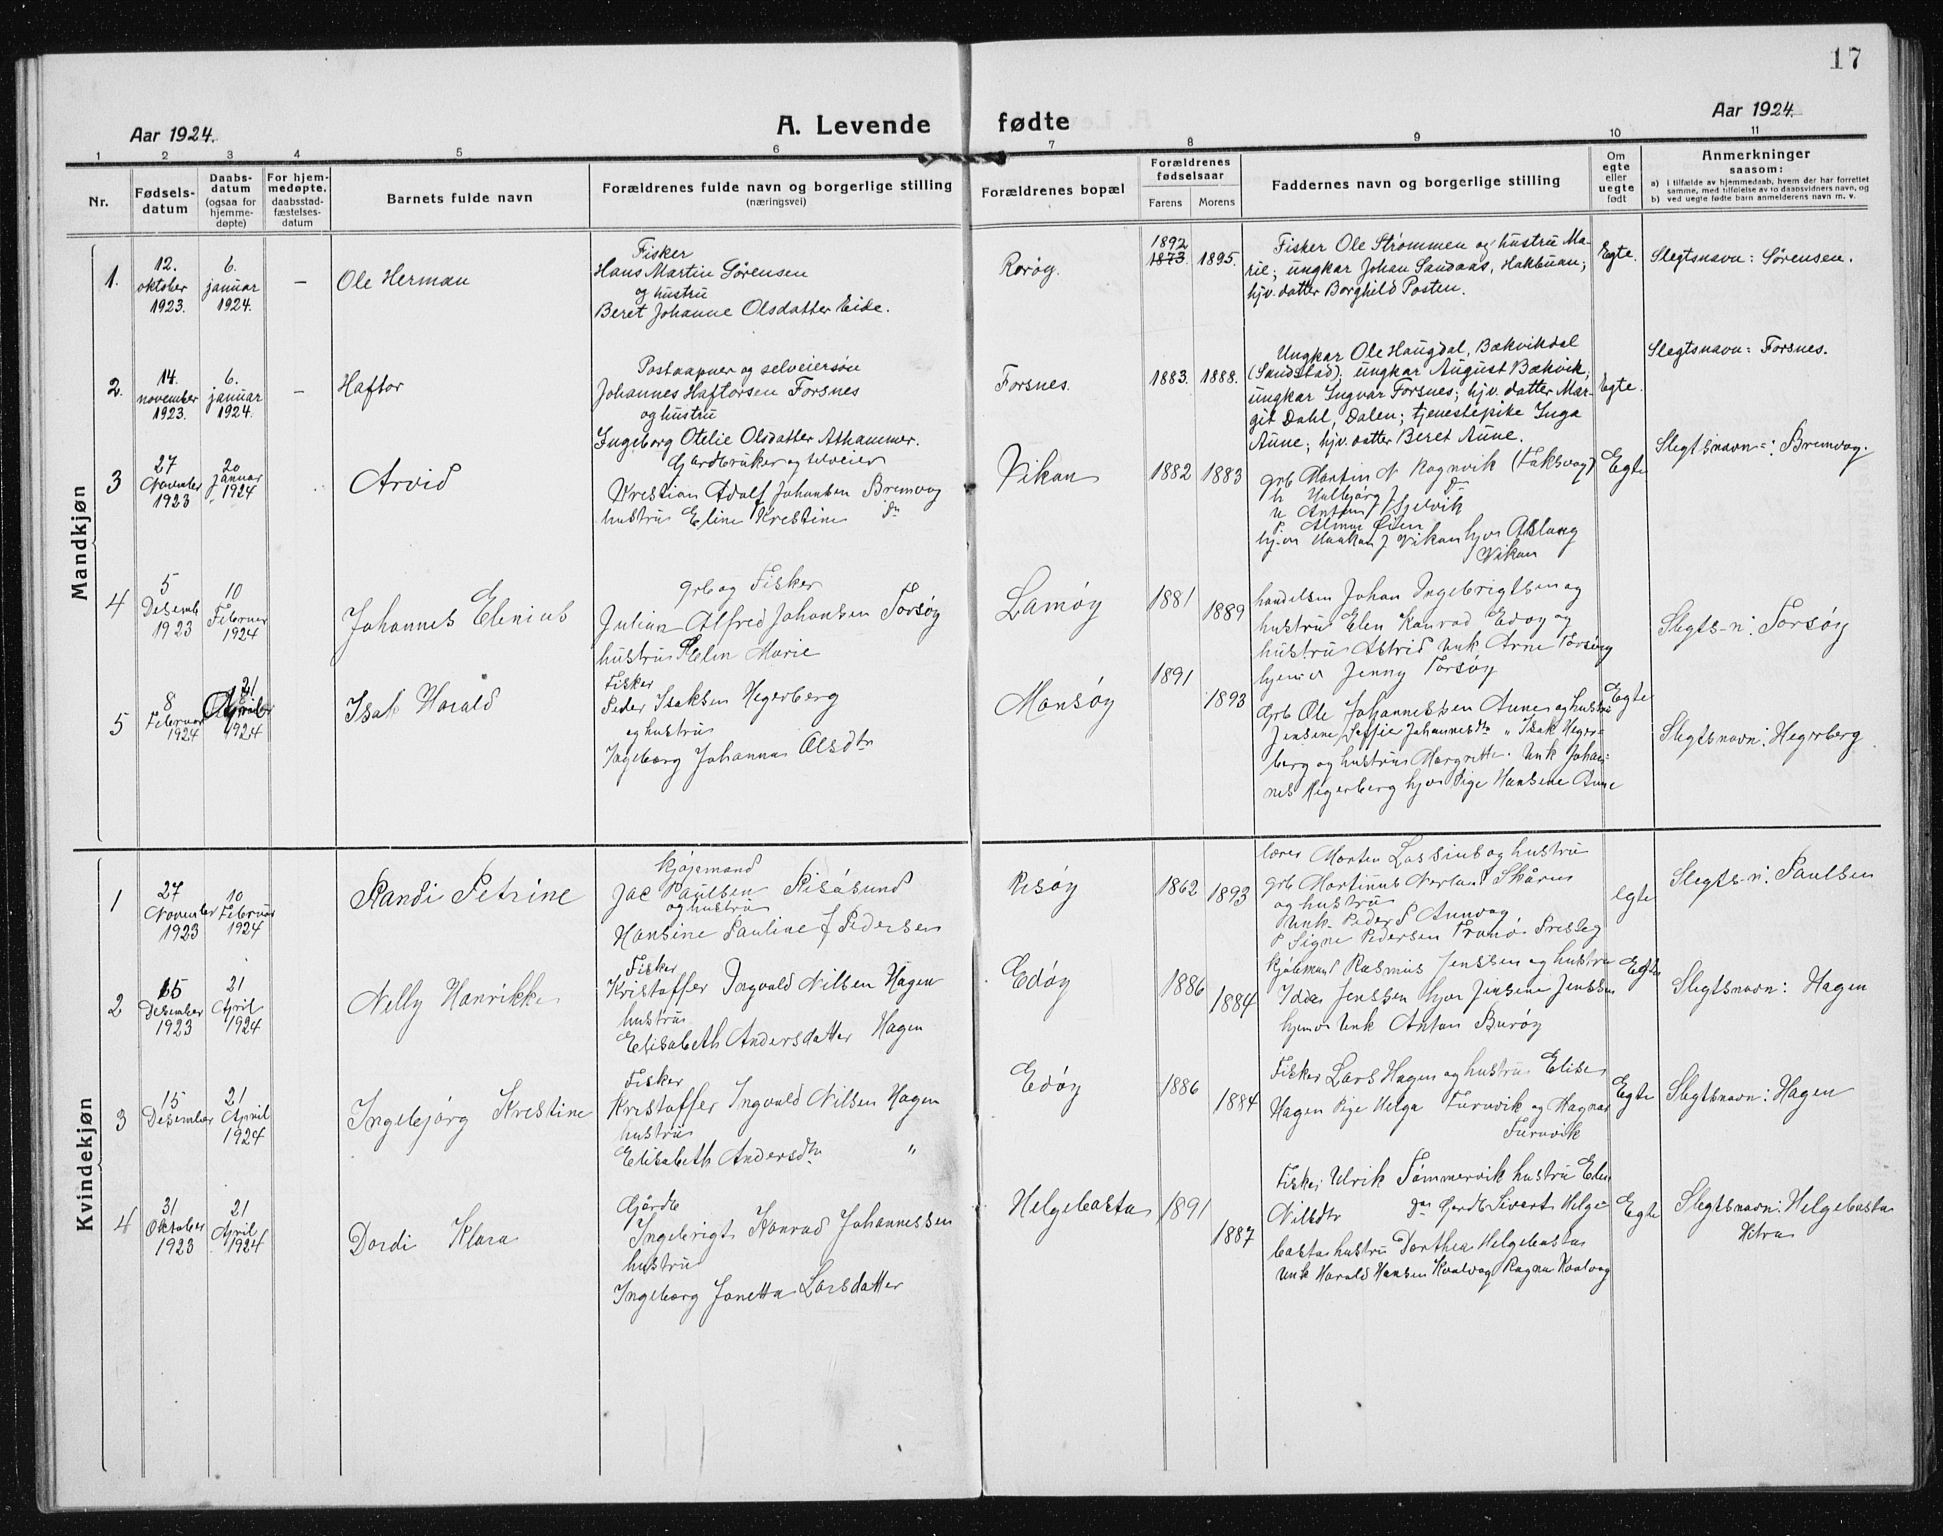 17
Aar 1924.
A. Levende
fødte
Aar 1924.
1 2 3 4 5 6 7 8 9 10 11
Nr.
Fødsels-
datum
Daabs-
datum
(ogsaa for
hjemme-
døpte)
For hjem-
medøpte,
daabsstad-
fæstelses-
datum
Barnets fulde navn
Forældrenes fulde navn og borgerlige stilling
(næringsvei)
Forældrenes bopæl
Forældrenes
fødselsaar
Farens Morens
Faddernes navn og borgerlige stilling
Om
egte
eller
uegte
født
Anmerkninger
saasom:
a) i tilfælde av hjemmedaab, hvem der har forrettet
samme, med tilføielse av to daabsvidners navn, og
b) ved uegte fødte barn anmelderens navn m. v.
Mandkjøn
1.
12.
oktober
1923.
6.
januar
1924.
–
Ole Herman
Fisker
Hans Martin Sørensen
og hustru
Beret Johanne Olsdatter Eide.
Rørøy.
1892
1873. 1895.
Fisker Ole Strømmen og hustru Ma-
rie; ungkar Johan Sandaas, Hakbuan;
hjv. datter Borghild Posten.
Egte.
Slegtsnavn: Sørensen.
2.
14.
november
1923.
6.
januar
1924.
–
Haftor
Postaapner og selveiersøn
Johannes Haftorsen Forsnes
og hustru
Ingeborg Otelie Olsdatter Athammer.
Forsnes.
1883. 1888.
Ungkar Ole Haugdal, Bækvikdal
(Sandstad); ungkar August Bækvik;
ungkar Ingvar Forsnes; hjv. datter Mar-
git Dahl, Dalen; tjenestepike Inga
Aune; hjv. datter Beret Aune.
Egte.
Slegtsnavn: Forsnes.
3
27
November
1923
20
januar
1924
Arvid
Gardbruker og selveier
Kristian Adolf Johansen Bremvag
hustru Eline Kristine
Vikan
1882 1883
grb Martin N Ragnvik (Faksvag)
Anton Gjelvik
Almar Øien
Vikan hjvr Aslaug
Vikan
Egte
Slegtsnavn: Bremvag.
4
5
Desemb
1923
10
Februar
1924
Johannes Elenius
grb og Fisker
Julian Alfred Johansen Forsøy
hustru Elen Marie
Lamøy
1881
1889
handelsm Johan Ingebrigtsen og
hustru Elen Konrad Edøy og
hustru Astrid Unk Arne Forsøy
hjemv Jenny Forsøy
Slegts-n: Forsøy
5
8
Februar
1924
21
April
1924
Isak Harald
Fisker
Peder Isaksen Hegerberg
og hustru
Ingeborg Johanna Olsdtr
Mansøy
1891
1893
Grb Ole Johannessen Aune og hustru
Jensine Soffie Johannesdtr " Isak Heger-
berg og hustru Margrette. Unk Johan-
nes Hegerberg hjvr Pige Hansine Aune
Egte
Slegtsnavn: Hegerberg
Kvindekjøn
1
27
November
1923
10
Februar
1924
Randi Petrine
Kjøpmand
Jac Paulsen Risøsund
og hustru
Hansine Pauline J Pedersen
Risøy
1862
1893
lærer Morten Lossius og hustru
grb Martinus Norland Skårus
og hustru
Unk Peder P Aunvag
P Signe Pedersen
egte
Slegts-n: Paulsen
2
15
Desember
1923
21
April
1924
Nelly Henrikke
Fisker
Kristoffer Ingvald Nilsen Hagen
hustru
Elisabeth Andersdatter Hagen
Edøy
1886
1884
kjøbmand Rasmus Jenssen og hustru
Ida Jenssen hjvr Jensine Jenssen
hjemv Unk Anton Burøy
Egte
Slegtsnavn: Hagen
3
15
Desember
21
April
1924
Ingebjørg Kristine
Fisker
Kristoffer Ingvald Nilsen Hagen
hustru
Elisabeth Andersdtr "
Edøy
1886
1884
Fisker Lars Hagen og hustru Elise
Hagen Pige Helga Furuvik og Ragnar
Furuvik
Egte
Slegtsnavn: Hagen
4
31
Oktober
1923
21
April
1924
Dordi Klara
Gårdb
Ingebrigt Konrad Johannessen
hustru
Ingeborg Janetta Larsdatter
Helgebosta
1891
1887
Fisker Ulrik Tømmervik hustru Elen
Nilsdtr Gardb Sivert Helge-
bosta hustru Dorthea Helgebosta
Unk Harald Hansen Kvalvag Ragna Kvalvag
Egte
Slegtsnavn: Helgebosta
Hitra